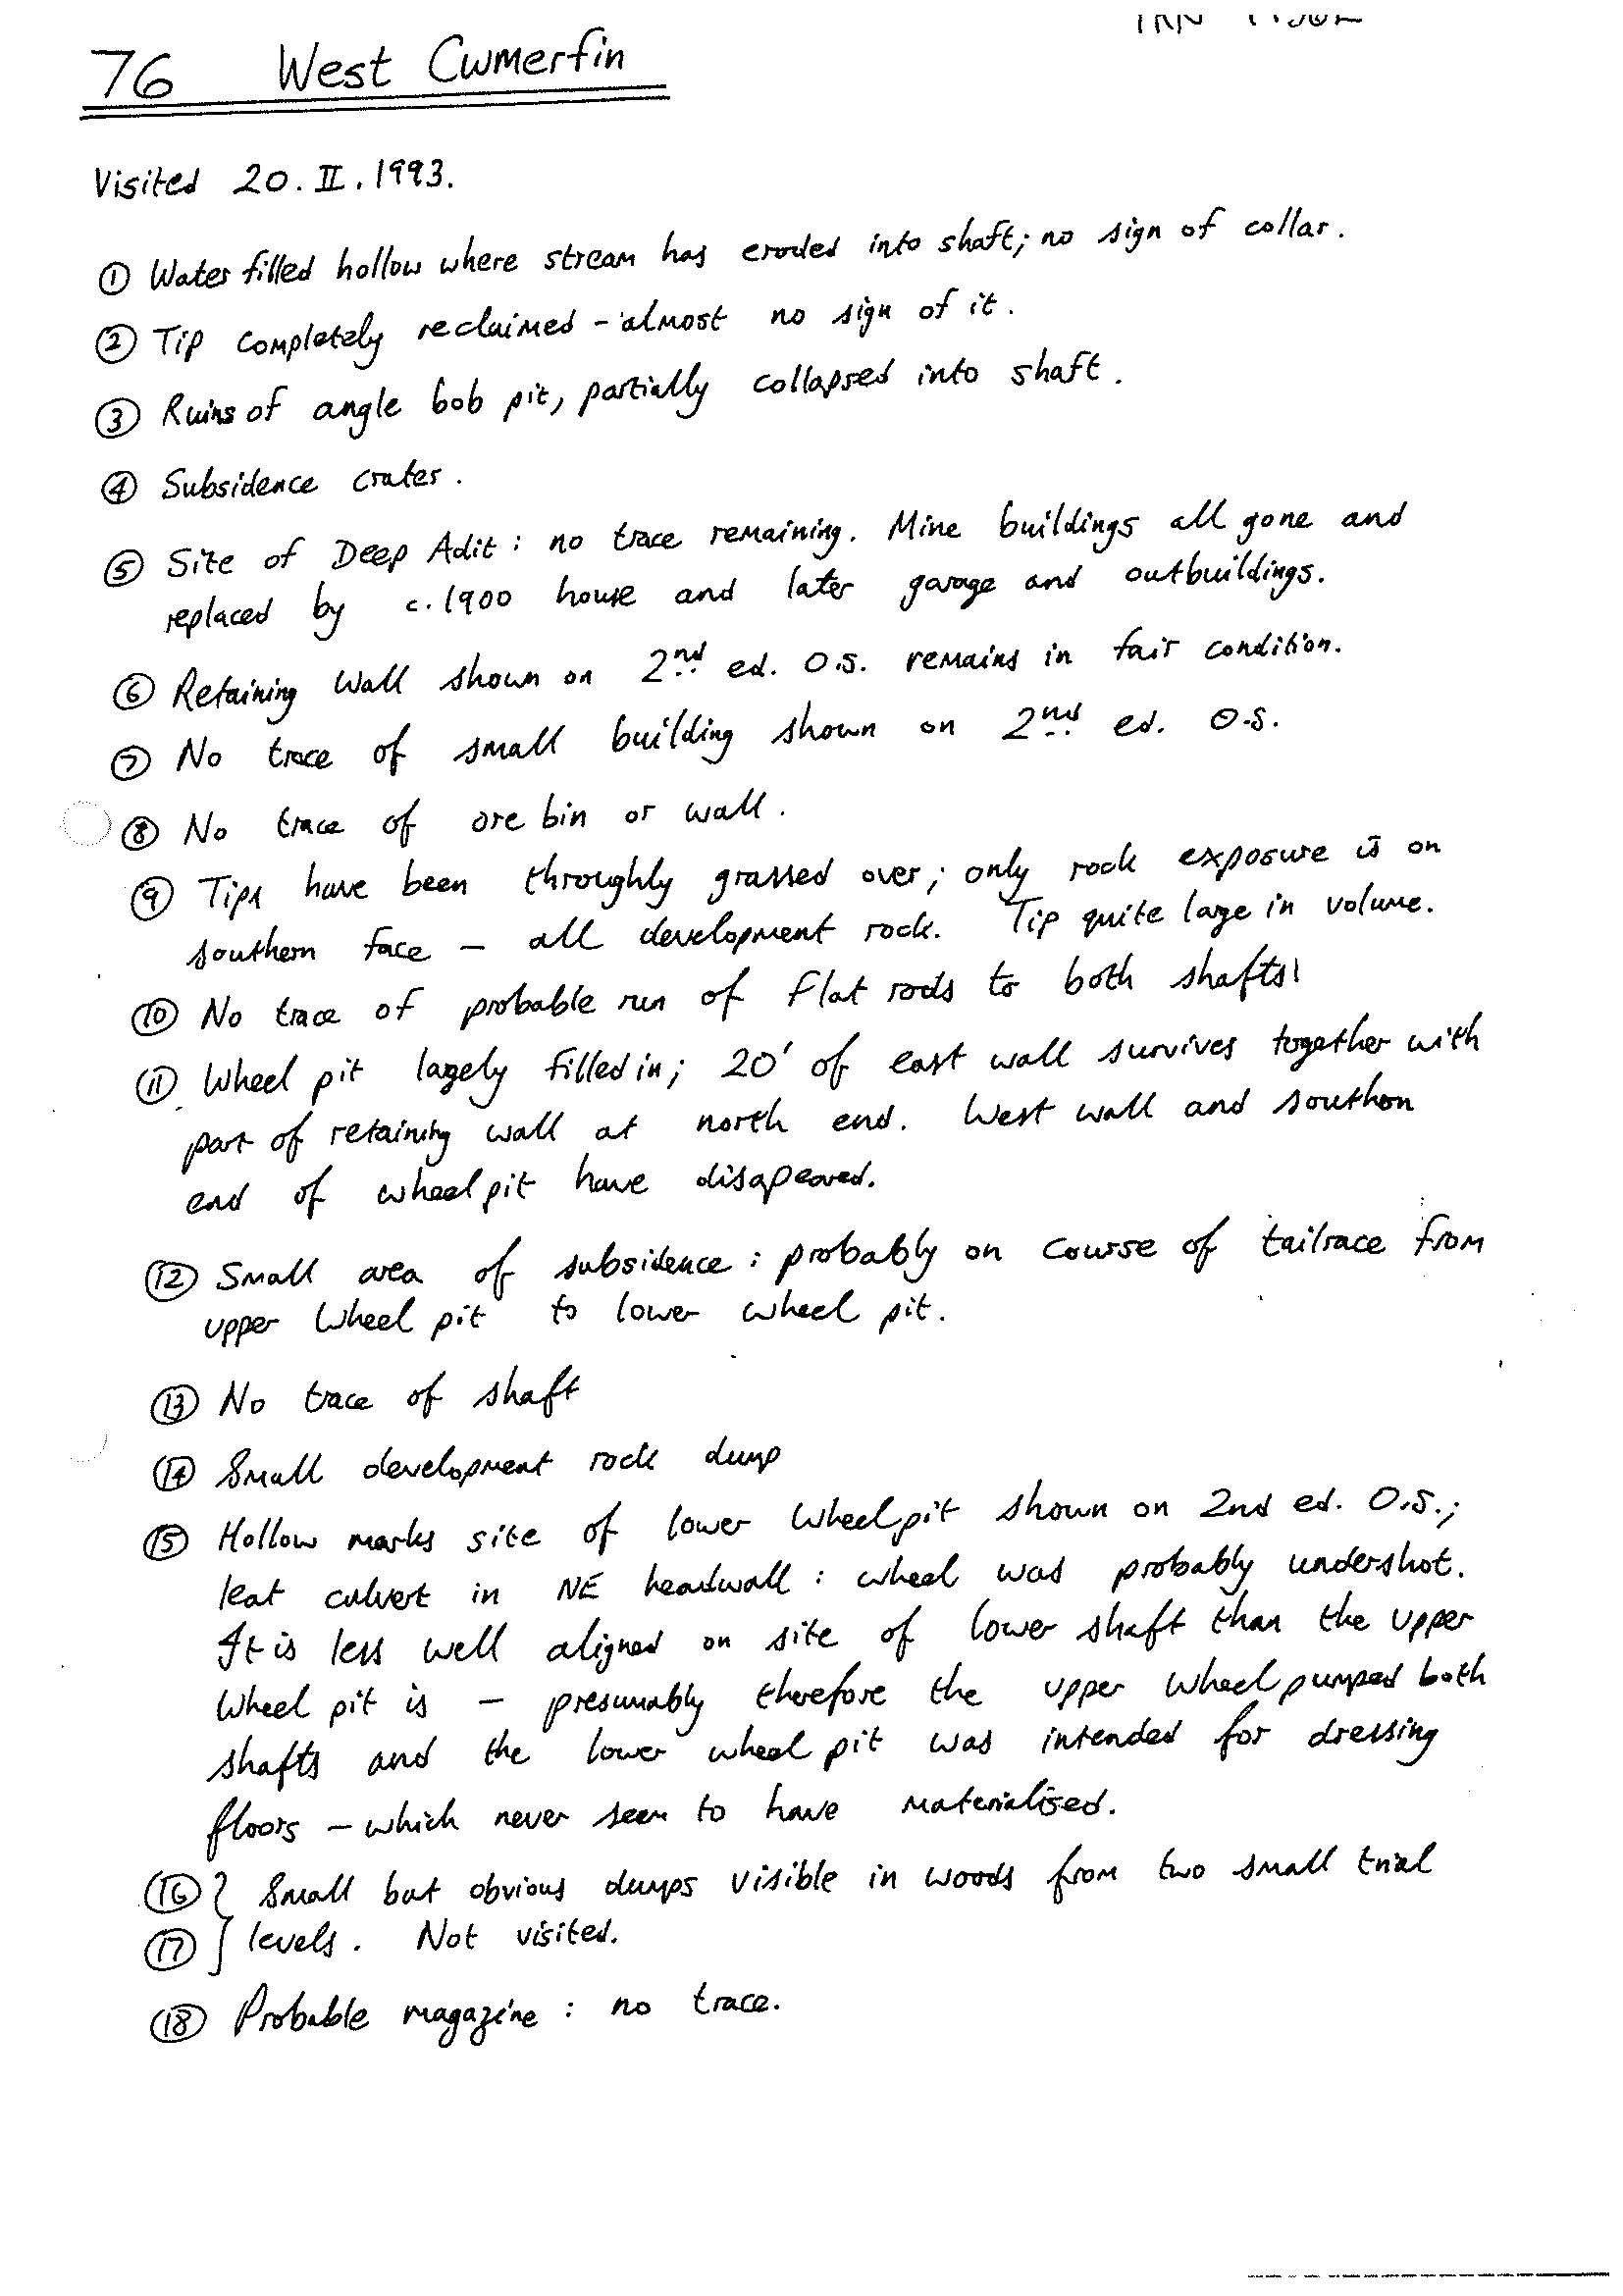 76 West Cwmerfin
Visited 20.II.1993.
① Water filled hollow where stream has eroded into shaft; no sign of collar.
② Tip completely reclaimed - almost no sign of it.
③ Ruins of angle bob pit, partially collapsed into shaft.
④ Subsidence crater.
⑤ Site of Deep Adit: no trace remaining. Mine buildings all gone and
replaced by c.1900 house and later garage and outbuildings.
⑥ Retaining wall shown on 2nd ed. O.S. remains in fair condition.
⑦ No trace of small building shown on 2nd ed. O.S.
⑧ No trace of ore bin or wall.
⑨ Tips have been throughly grassed over; only rock exposure is on
southern face - all development rock. Tip quite large in volume.
⑩ No trace of probable run of flat rods to both shafts!
⑪ Wheel pit largely filled in; 20' of east wall survives together with
part of retaining wall at north end. West wall and southern
end of wheelpit have disapeared.
⑫ Small area of subsidence: probably on course of tailrace from
upper wheel pit to lower wheel pit.
⑬ No trace of shaft
⑭ Small development rock dump
⑮ Hollow marks site of lower wheelpit shown on 2nd ed. O.S.;
leat culvert in NE headwall: wheel was probably undershot.
It is less well aligned on site of lower shaft than the upper
wheel pit is - presumably therefore the upper wheel pumped both
shafts and the lower wheel pit was intended for dressing
floors - which never seem to have materialised.
⑯ } Small but obvious dumps visible in woods from two small trial
⑰ } levels. Not visited.
⑱ Probable magazine: no trace.